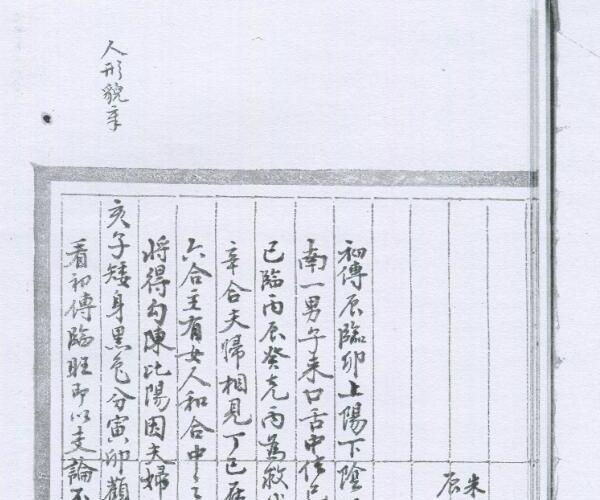 朱
辰
初傳辰臨卯上陽下陰
南一男子来口舌中
已臨丙辰癸克丙為救
辛合夫歸相見丁已
六合主有女人和合中
將得勾陳比陽因夫婦
亥子矮身黑色分寅卯顏
看初傳臨旺即以支論
人形貌章